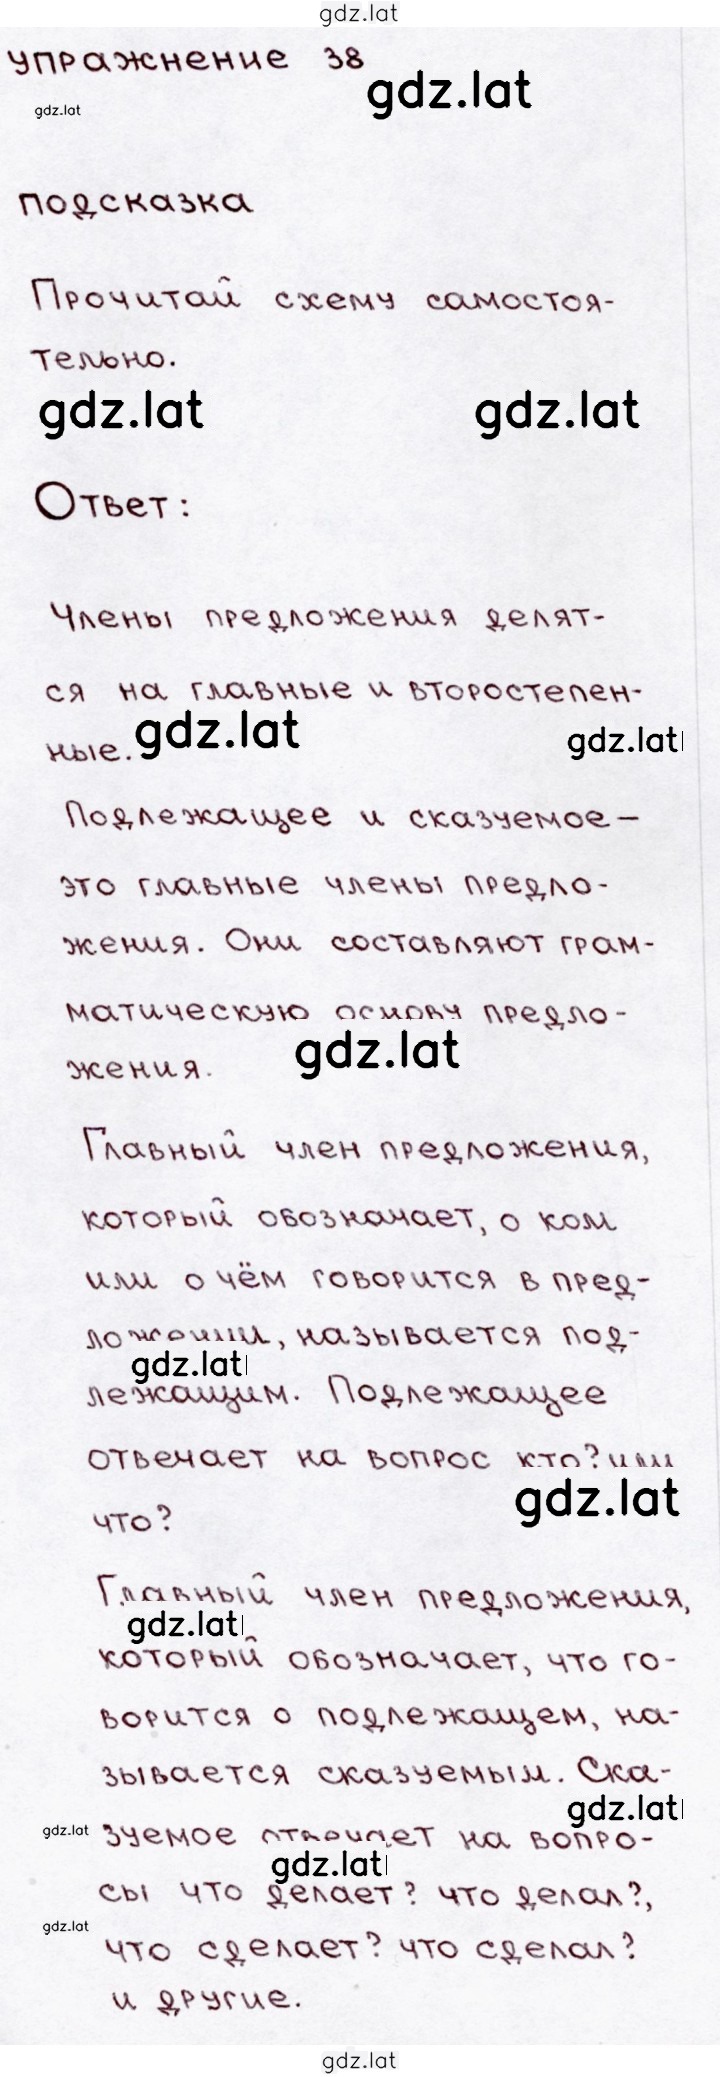 gdz.lat
упражнение 38
gdz.lat
gdz.lat
подсказка
Прочитай схему самостоя-
тельно.
gdz.lat gdz.lat
Ответ:
Члены предложения делят-
ся на главные и второстепен-
ные. gdz.lat gdz.lat
Подлежащее и сказуемое –
это главные члены предло-
жения. Они составляют грам-
матическую основу предло-
жения. gdz.lat
Главный член предложения,
который обозначает, о ком
или о чём говорится в пред-
ложении, называется под-
gdz.lat
лежащим. Подлежащее
отвечает на вопрос кто? или
что? gdz.lat
Главный член предложения,
gdz.lat
который обозначает, что го-
ворится о подлежащем, на-
зывается сказуемым. Ска-
gdz.lat
gdz.lat зуемое отвечает на вопро-
gdz.lat
сы что делает? что делал?,
gdz.lat
что сделает? что сделал?
и другие.
gdz.lat